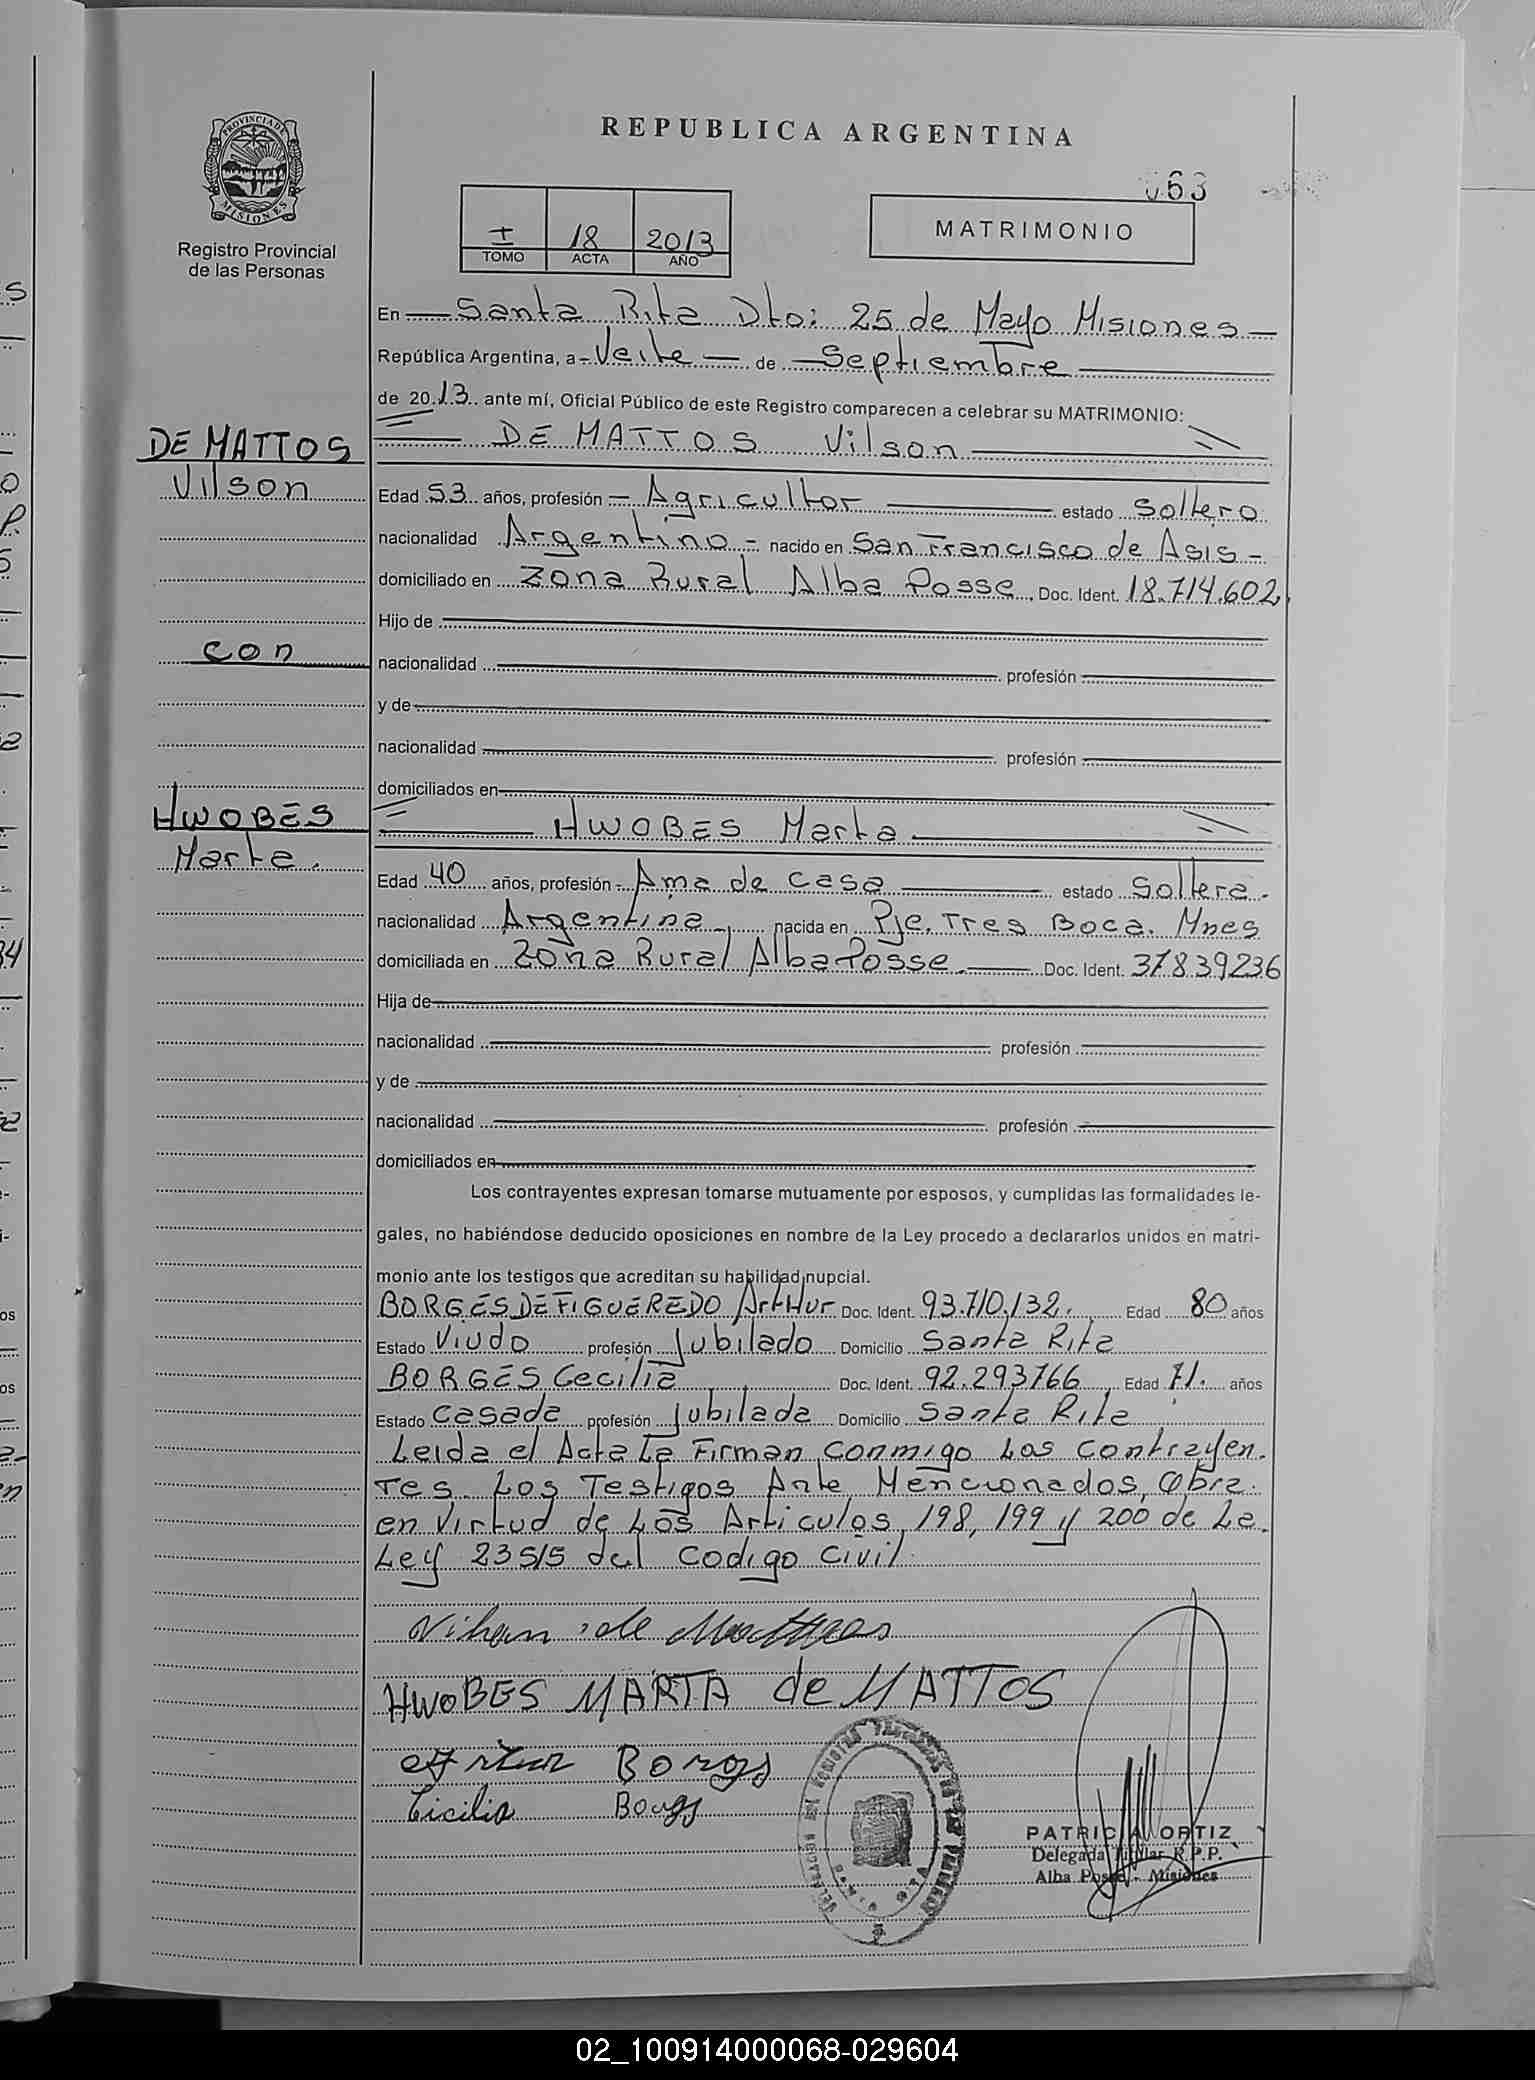 REPUBLICA ARGENTINA
PROVINCIA DE MISIONES
Registro Provincial
de las Personas
063
I 18 2013
TOMO ACTA AÑO
MATRIMONIO
En Santa Rita Dto: 25 de Mayo Misiones
República Argentina, a Veite de Septiembre
de 2013 ante mí, Oficial Público de este Registro comparecen a celebrar su MATRIMONIO:
DE MATTOS
Vilson
con
HWOBES
Marta.
DE MATTOS Vilson
Edad 53 años, profesión Agricultor estado Soltero
nacionalidad Argentino nacido en San Francisco de Asis
domiciliado en Zona Rural Alba Posse, Doc. Ident. 18.714.602
Hijo de
nacionalidad profesión
y de
nacionalidad profesión
domiciliados en
HWOBES Marta
Edad 40 años, profesión Ama de casa estado Soltera
nacionalidad Argentina nacida en Pje. Tres Boca. Mnes
domiciliada en Zona Rural Alba Posse Doc. Ident. 37839236
Hija de
nacionalidad profesión
y de
nacionalidad profesión
domiciliados en
Los contrayentes expresan tomarse mutuamente por esposos, y cumplidas las formalidades le-
gales, no habiéndose deducido oposiciones en nombre de la Ley procedo a declararlos unidos en matri-
monio ante los testigos que acreditan su habilidad nupcial.
BORGES DE FIGUEREDO ArtHur Doc. Ident. 93.710.132. Edad 80 años
Estado Viudo profesión Jubilado Domicilio Santa Rita
BORGES Cecilia Doc. Ident. 92.293766 Edad 71. años
Estado Casada profesión Jubilada Domicilio Santa Rita
Leida el Acta La Firman conmigo Los contrayen.
Tes. Los Testigos Ante Mencionados, Obra.
en Virtud de Los Articulos, 198, 199 y 200 de La
Ley 23515 del Codigo Civil.
de Mattos
HWOBES MARTA de MATTOS
Borgs
Cicilia Borgs
PATRICIA ORTIZ
Delegada Titular R.P.P.
Alba Posse - Misiones
02_100914000068-029604